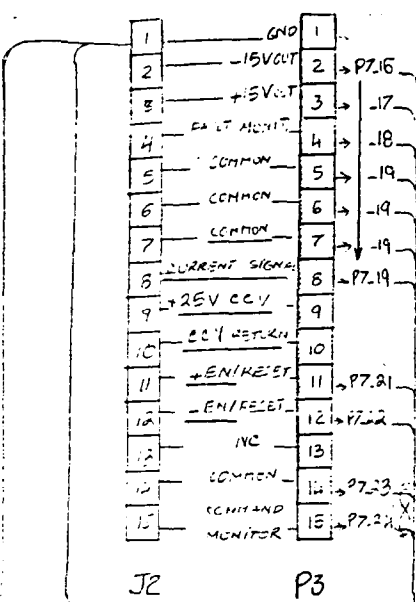 1 GND 1
2 -15VOUT 2 → P7-16
3 +15VOUT 3 → -17
4 FAULT MONIT. 4 → -18
5 COMMON 5 → -19
6 COMMON 6 → -19
7 COMMON 7 → -19
8 CURRENT SIGNAL 8 → P7-19
9 +25V CCV 9
10 CCV RETURN 10
11 +EN/RESET 11 → P7-21
12 -EN/RESET 12 → P7-22
13 NC 13
14 COMMON 14 → P7-23
15 COMMAND MONITOR 15
J2 P3